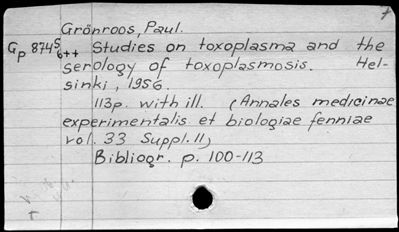 Grönroos, Paul.
Gp 874S
6++ Studies on toxoplasma and the
serology of toxoplasmosis. Hel-
sinki, 1956.
113p. with ill. (Annales medicinae
experimentalis et biologiae fenniae
vol. 33 Suppl. 11)
Bibliogr. p. 100-113